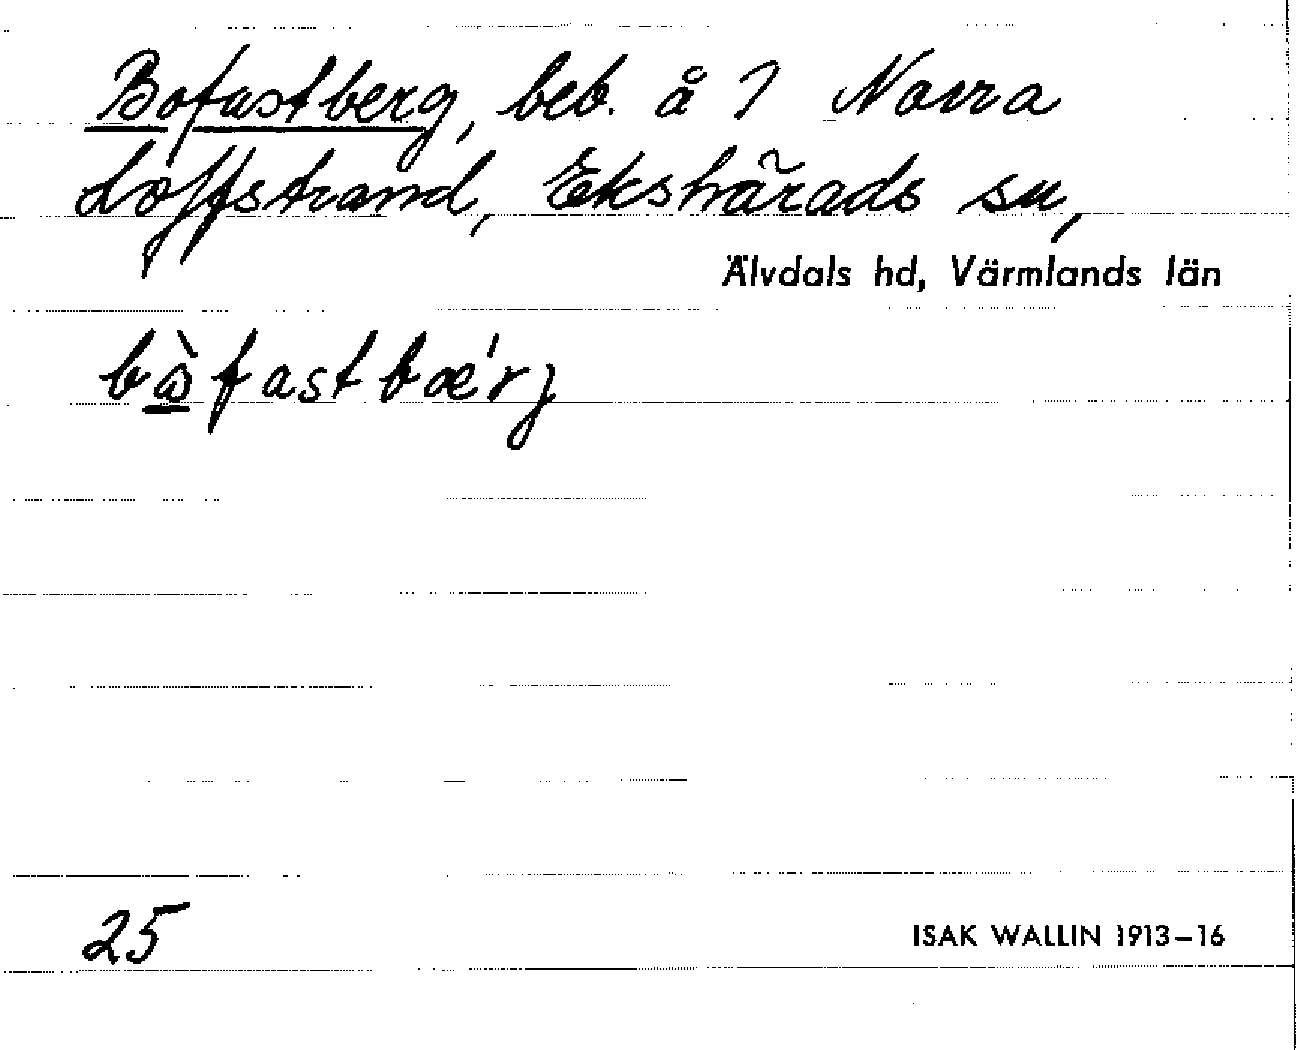 Bofastberg, beb. å 7 Norra
Loffstrand, Ekshärads sn,
Älvdals hd, Värmlands län
bàfastbæ'rj
25
ISAK WALLIN 1913–16